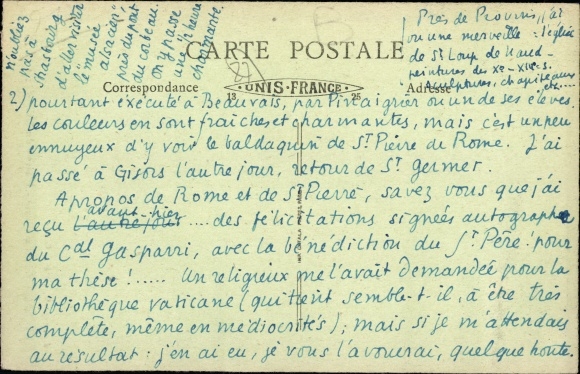 n'oubliez
pas à
Strasbourg
d'aller visiter
le musée
alsacien
près du pont
du corbeau.
on y passe
une 1/2 heure
charmante.
Près de Provins, j'ai
vu une merveille : l'église
de St Loup de Naud -
peintures des Xe - XIIe s.
sculptures, chapiteaux
etc....
CARTE POSTALE
Correspondance
UNIS-FRANCE
13 25
Adresse
2) pourtant exécuté à Beauvais, par Pinaigrier ou un de ses élèves.
Les couleurs en sont fraîches et charmantes, mais c'est un peu
ennuyeux d'y voir le baldaquin de St Pierre de Rome. J'ai
passé à Gisors l'autre jour, retour de St Germer.
A propos de Rome et de St Pierre, savez vous que j'ai
avant-hier
reçu l'autre jour .... des félicitations signées autographe
du Cdl Gasparri, avec la bénédiction du St Père pour
ma thèse !...... Un religieux me l'avait demandée pour la
bibliothèque vaticane (qui tient semble-t-il, à être très
complète, même en médiocrités) ; mais si je m'attendais
au résultat : j'en ai eu, je vous l'avouerai, quelque honte.